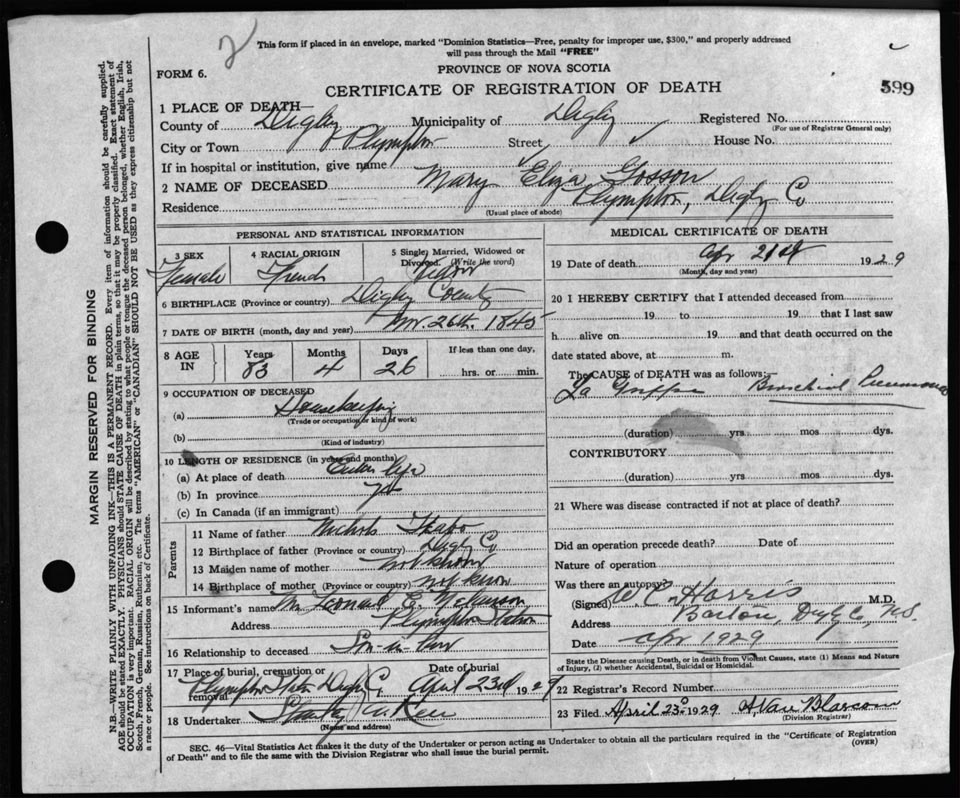 2
This form if placed in an envelope, marked "Dominion Statistics—Free, penalty for improper use, $300," and properly addressed
will pass through the Mail "FREE"
FORM 6.
PROVINCE OF NOVA SCOTIA
CERTIFICATE OF REGISTRATION OF DEATH
599
1 PLACE OF DEATH—
County of Digby Municipality of Digby Registered No.
(For use of Registrar General only)
City or Town Plympton Street House No.
If in hospital or institution, give name
2 NAME OF DECEASED Mary Eliza Gosson
Residence Plympton, Digby Co
(Usual place of abode)
PERSONAL AND STATISTICAL INFORMATION
3 SEX Female
4 RACIAL ORIGIN French
5 Single, Married, Widowed or
Divorced. (Write the word) Widow
6 BIRTHPLACE (Province or country) Digby County
7 DATE OF BIRTH (month, day and year) Nov. 26th. 1845
8 AGE IN Years 83 Months 4 Days 26 If less than one day,
hrs. or min.
9 OCCUPATION OF DECEASED
(a) Housekeeping
(Trade or occupation or kind of work)
(b)
(Kind of industry)
10 LENGTH OF RESIDENCE (in years and months)
(a) At place of death Entire life
(b) In province
(c) In Canada (if an immigrant)
Parents
11 Name of father Nichols
12 Birthplace of father (Province or country) Digby Co
13 Maiden name of mother not known
14 Birthplace of mother (Province or country) not known
15 Informant's name
Address Plympton Station
16 Relationship to deceased Son-in-law
17 Place of burial, cremation or
removal Plympton Digby Co
Date of burial April 23rd 1929
18 Undertaker
(Name and address)
MEDICAL CERTIFICATE OF DEATH
19 Date of death Apr 21st 1929
(Month, day and year)
20 I HEREBY CERTIFY that I attended deceased from
19 to 19 that I last saw
h alive on 19 and that death occurred on the
date stated above, at m.
The CAUSE of DEATH was as follows:
La Grippe Bronchial Pneumonia
(duration) yrs mos dys.
CONTRIBUTORY
(duration) yrs. mos dys.
21 Where was disease contracted if not at place of death?
Did an operation precede death? Date of
Nature of operation
Was there an autopsy?
(Signed) W.C. Harris M.D.
Address Barton, Digby Co, N.S.
Date Apr 1929
State the Disease causing Death, or in death from Violent Causes, state (1) Means and Nature
of Injury, (2) whether Accidental, Suicidal or Homicidal.
22 Registrar's Record Number
23 Filed April 23rd 1929
(Division Registrar)
SEC. 46—Vital Statistics Act makes it the duty of the Undertaker or person acting as Undertaker to obtain all the particulars required in the "Certificate of Registration
of Death" and to file the same with the Division Registrar who shall issue the burial permit.
(OVER)
MARGIN RESERVED FOR BINDING
N.B.—WRITE PLAINLY WITH UNFADING INK—THIS IS A PERMANENT RECORD. Every item of information should be carefully supplied.
AGE should be stated EXACTLY. PHYSICIANS should STATE CAUSE OF DEATH in plain terms, so that it may be properly classified. Exact statement of
OCCUPATION is very important. RACIAL ORIGIN will be described by stating to what people or tongue the deceased person belonged, whether English, Irish,
Scotch, French, German, Russian, Ruthenian, etc. The terms "AMERICAN" or "CANADIAN" SHOULD NOT BE USED as they express citizenship but not
a race or people. See instructions on back of Certificate.